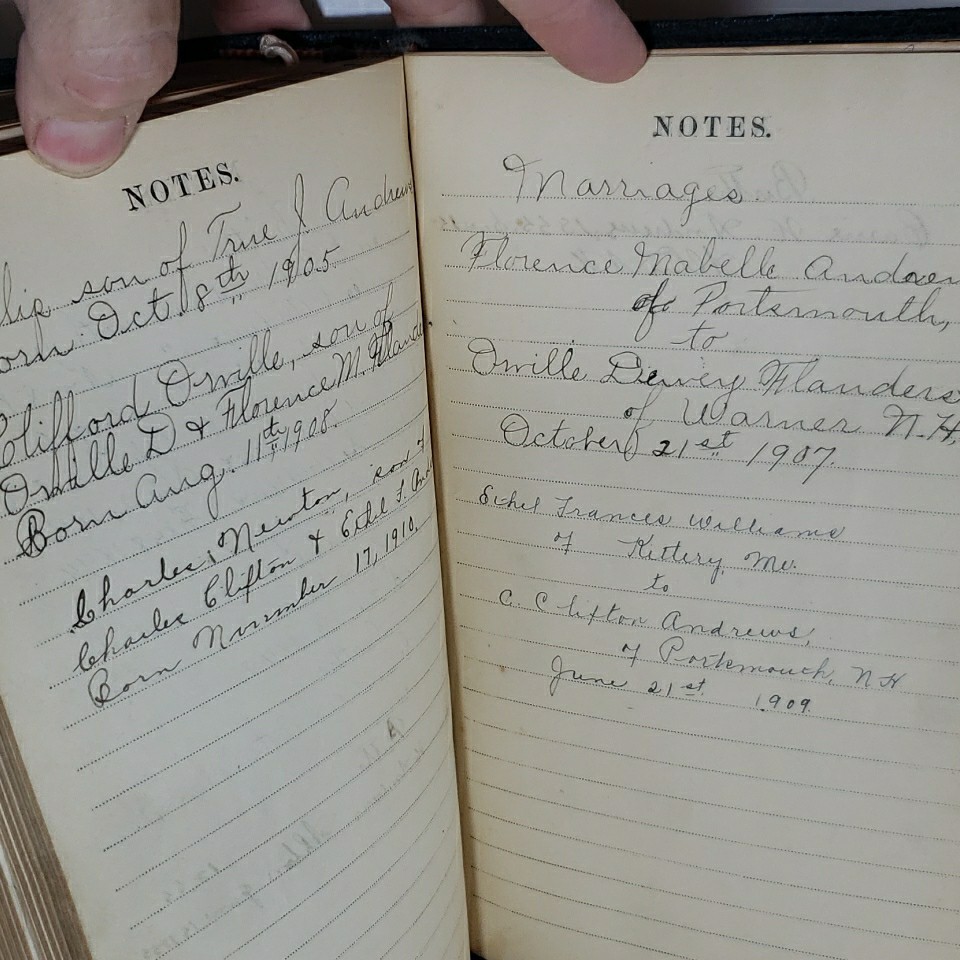 NOTES.
lip son of True J Andrews
orn Oct 18th 1905
Clifford Orville, son of
Orville D & Florence M. Flande
Born Aug. 11th 1908.
Charles Newton, son of
Charles Clifton & Ethel F. And
Born November 17, 1910.
NOTES.
Marriages.
Florence Mabelle Andrew
of Portsmouth,
to
Orville Dewey Flanders
of Warner N.H.
October 21st 1907.
Ethel Frances Williams
of Kittery, Me.
to
C. Clifton Andrews,
of Portsmouth, N H
June 21st 1909